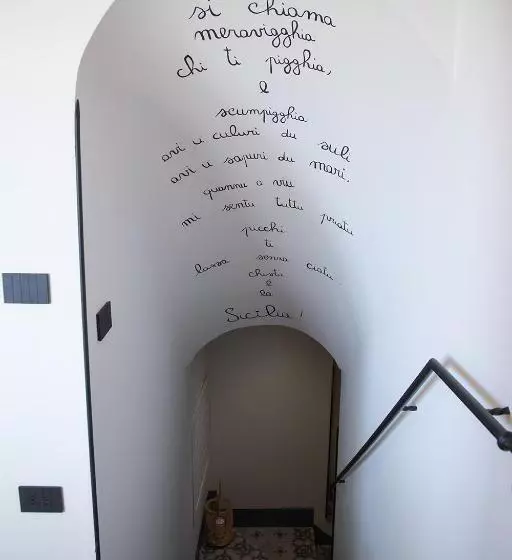 si chiama
meravigghia
chi ti pigghia,
e
scumpigghia
avi u culuri du suli
avi u sapuri du mari.
quannu a viu
mi sentu tuttu priatu
picchi
ti
lassa senza ciatu.
chista
è
la
Sicilia!